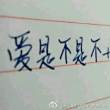 爱是不是不